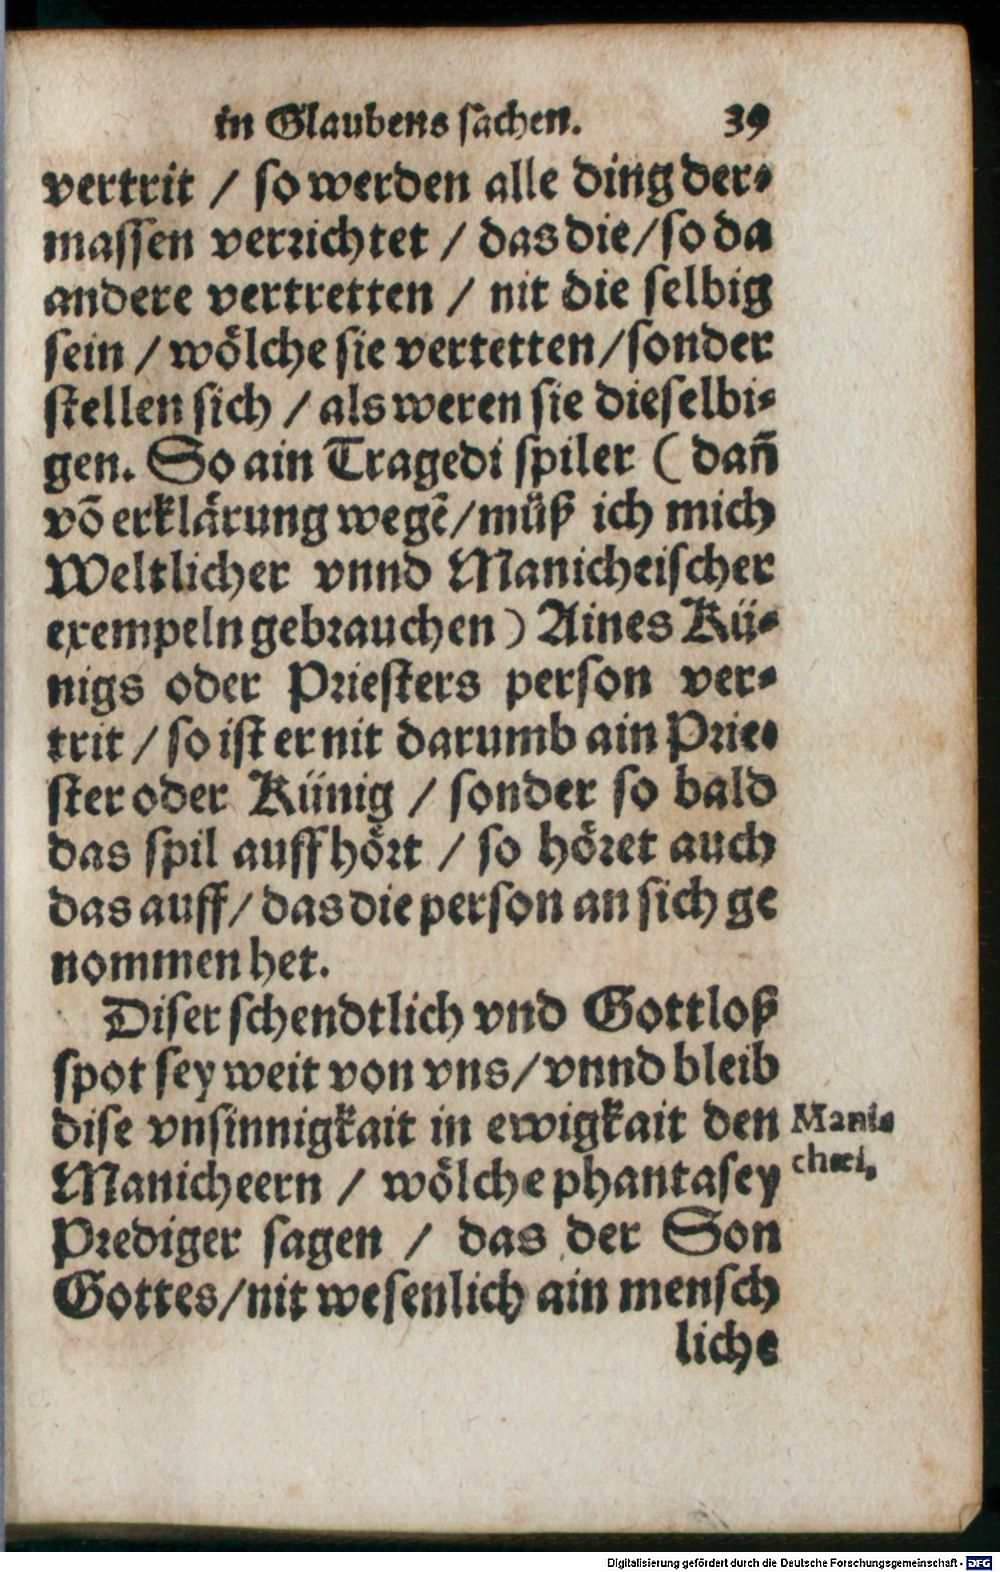 in Glaubens sachen. 39
vertrit / so werden alle ding der-
massen verrichtet / das die / so da
andere vertretten / nit die selbig
sein / wölche sie vertetten / sonder
stellen sich / als weren sie dieselbi-
gen. So ain Tragedi spiler ( dañ
võ erklärung wegẽ / müß ich mich
Weltlicher vnnd Manicheischer
exempeln gebrauchen ) Aines Kü-
nigs oder Priesters person ver-
trit / so ist er nit darumb ain Prie-
ster oder Künig / sonder so bald
das spil auffhört / so höret auch
das auff / das die person an sich ge
nommen het.
Diser schendtlich vnd Gottloß
spot sey weit von vns / vnnd bleib
dise vnsinnigkait in ewigkait den
Manicheern / wölche phantasey
Prediger sagen / das der Son
Gottes / nit wesenlich ain mensch
liche
Mani-
chæi.
Digitalisierung gefördert durch die Deutsche Forschungsgemeinschaft - DFG